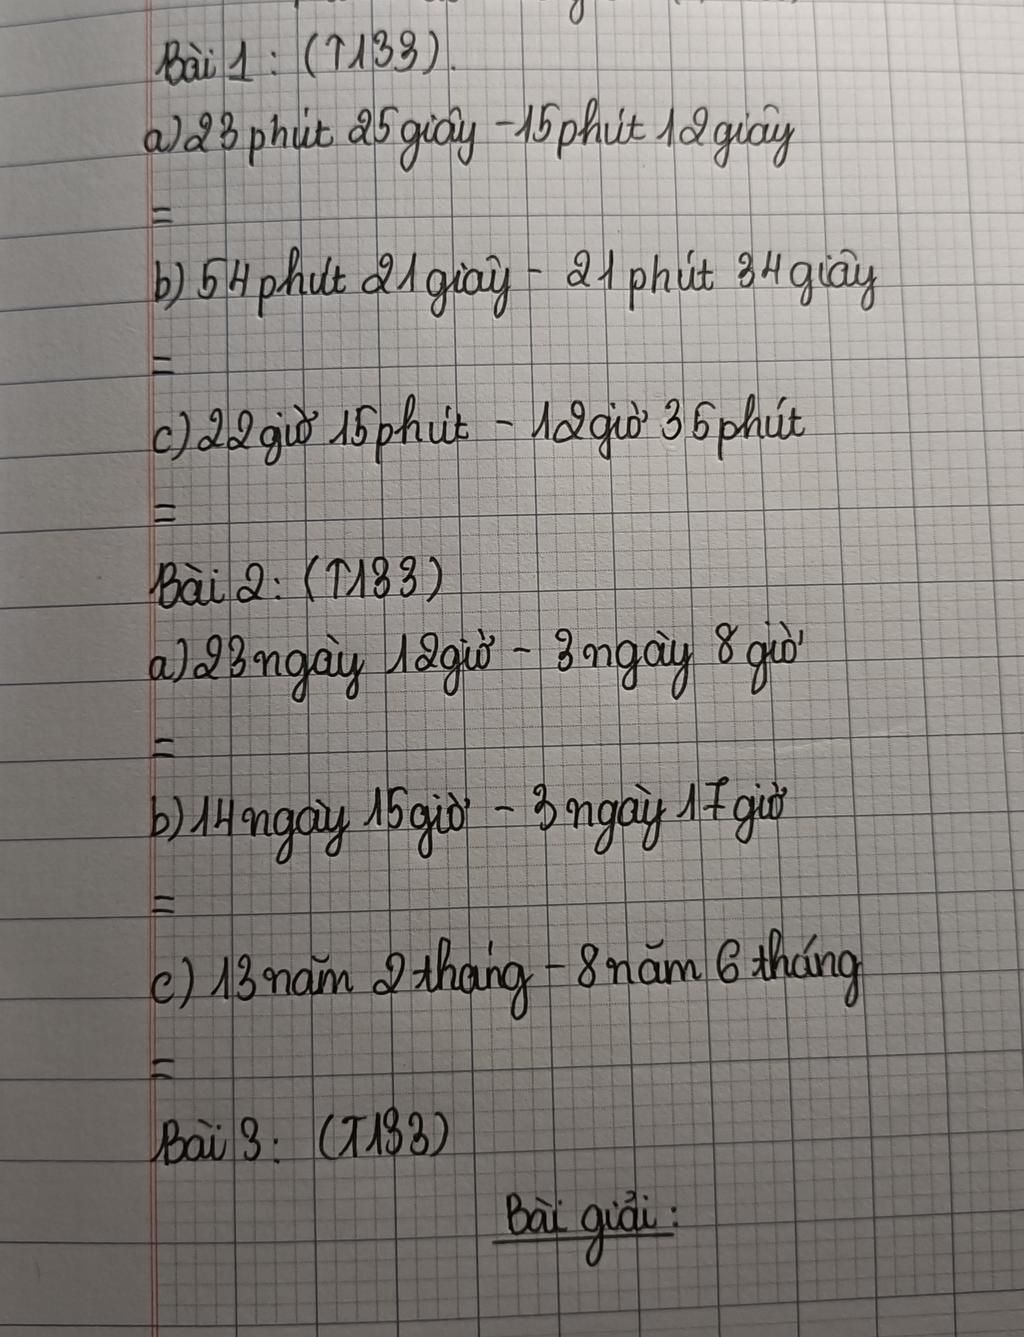 Bài 1: (T133).
a) 23 phút 25 giây - 15 phút 12 giây
=
b) 54 phút 21 giây - 21 phút 34 giây
=
c) 22 giờ 15 phút - 12 giờ 35 phút
=
Bài 2: (T133)
a) 23 ngày 12 giờ - 3 ngày 8 giờ
=
b) 14 ngày 15 giờ - 3 ngày 17 giờ
=
c) 13 năm 2 tháng - 8 năm 6 tháng
=
Bài 3: (T133)
Bài giải: